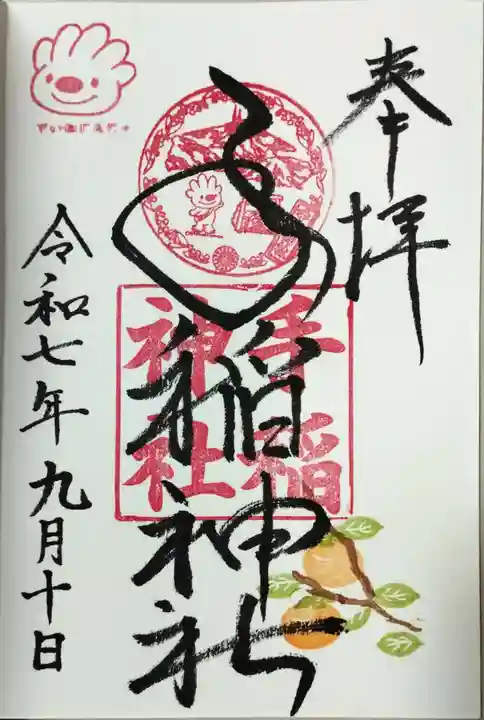 奉拝
手稲神社
手稲神社
令和七年九月十日